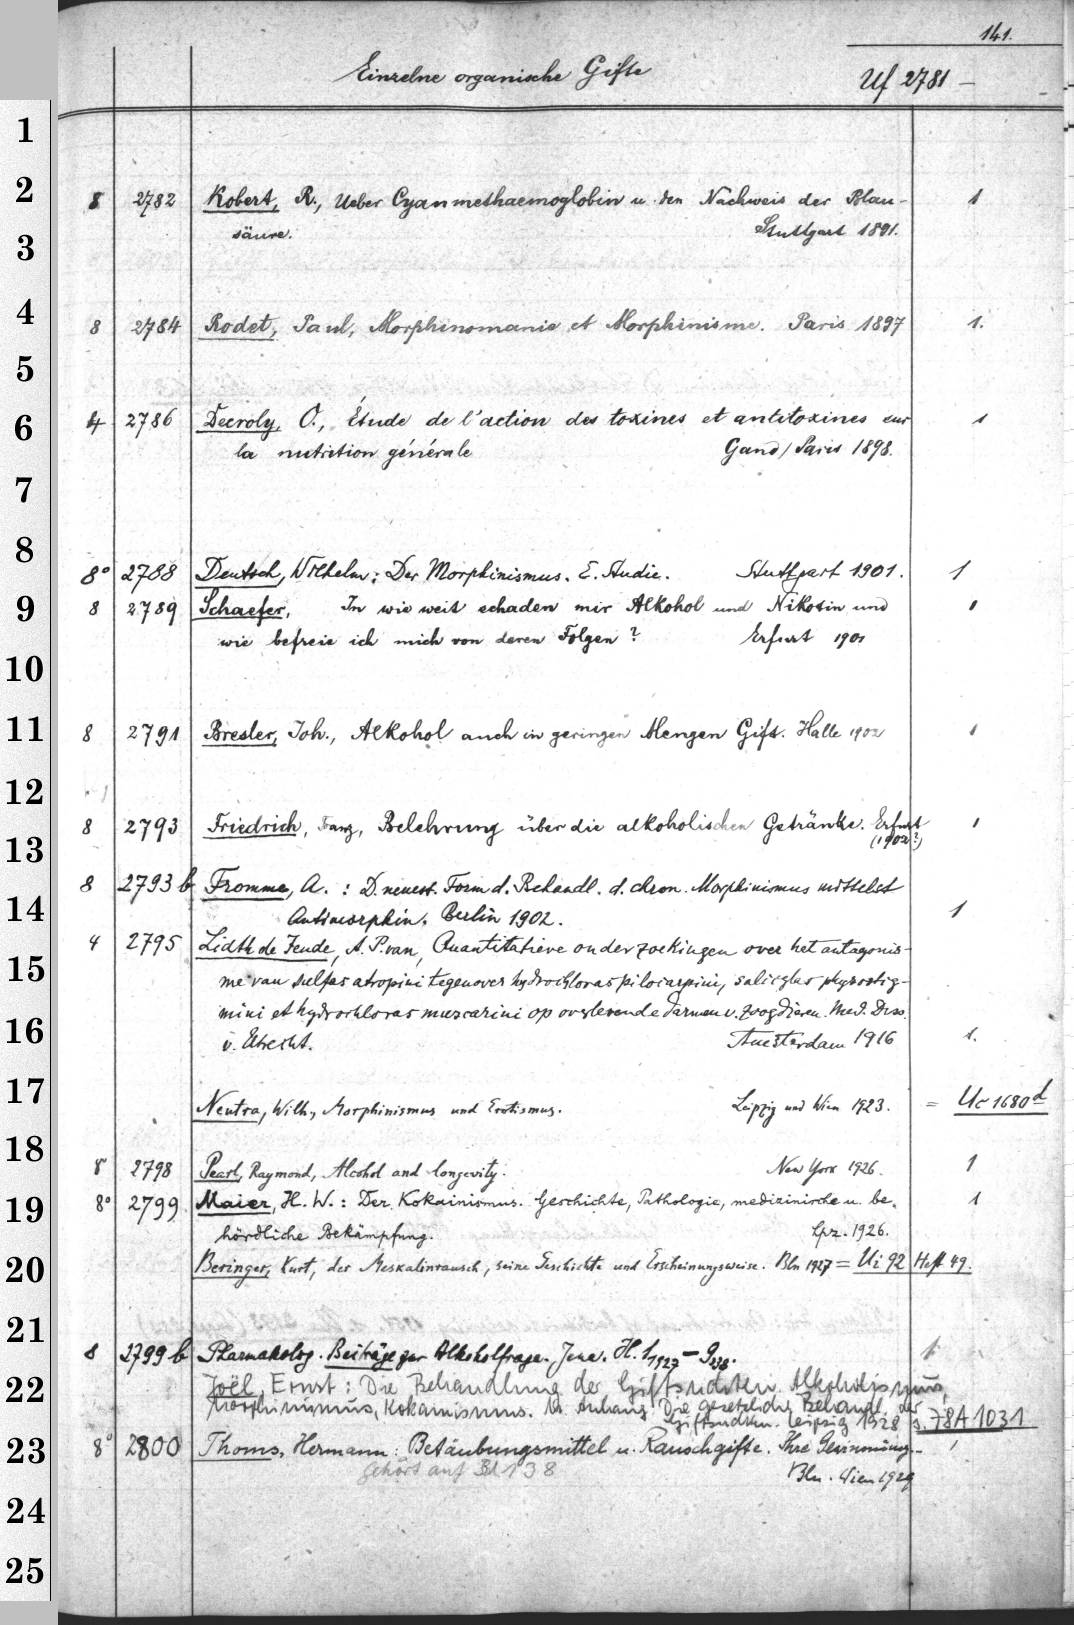 141.
Einzelne organische Gifte Uf 2781 —
1
2
8 2782 Kobert, R., Ueber Cyanmethaemoglobin u. den Nachweis der Blau- 1
säure. Stuttgart 1891.
3
4
8 2784 Rodet, Paul, Morphinomanie et Morphinisme. Paris 1897 1.
5
6
4 2786 Decroly, O., Étude de l'action des toxines et antitoxines sur 1
la nutrition générale Gand/Paris 1898.
7
8
8° 2788 Deutsch, Wilhelm: Der Morphinismus. E. Studie. Stuttgart 1901. 1
9
8 2789 Schaefer, In wie weit schaden mir Alkohol und Nikotin und 1
wie befreie ich mich von deren Folgen? Erfurt 1901
10
11
8 2791 Bresler, Joh., Alkohol auch in geringen Mengen Gift. Halle 1902 1
12
8 2793 Friedrich, Franz, Belehrung über die alkoholischen Getränke. Erfurt 1
(1902?)
13
8 2793b Fromme, A. : D. neuest. Form d. Behandl. d. chron. Morphinismus mittelst
14
Antimorphin. Berlin 1902. 1
4 2795 Lidth de Jeude, A. P. van, Quantitatieve onderzoekingen over het antagonis-
15
me van sulfas atropini tegenover hydrochloras pilocarpini, salicylas physostig-
mini et hydrochloras muscarini op overlevende darmen v. zoogdieren. Med. Diss.
16
v. Utrecht. Amsterdam 1916 1.
17
Neutra, Wilh., Morphinismus und Erotismus. Leipzig und Wien 1923. = Uc 1680d
18
8 2798 Pearl, Raymond, Alcohol and longevity. New York 1926. 1
19
8° 2799 Maier, H. W.: Der Kokainismus. Geschichte, Pathologie, medizinische u. be- 1
hördliche Bekämpfung. Lpz. 1926.
20
Beringer, Kurt, der Meskalinrausch, seine Geschichte und Erscheinungsweise. Bln 1927 = Ui 92 Heft 49.
21
8 2799b Pharmakolog. Beiträge zur Alkoholfrage. Jena. H. 1 1927 – 9 1
22
Joël, Ernst: Die Behandlung der Giftsuchten. Alkoholismus,
Morphinismus, Kokainismus. Anhang: Die gesetzliche Behandl. der
Giftsuchten. Leipzig 1928 s. 78A1031
23
8° 2800 Thoms, Hermann: Betäubungsmittel u. Rauschgifte. Ihre Gewinnung- 1
gehört auf Bl 138 Bln. Wien 1929
24
25